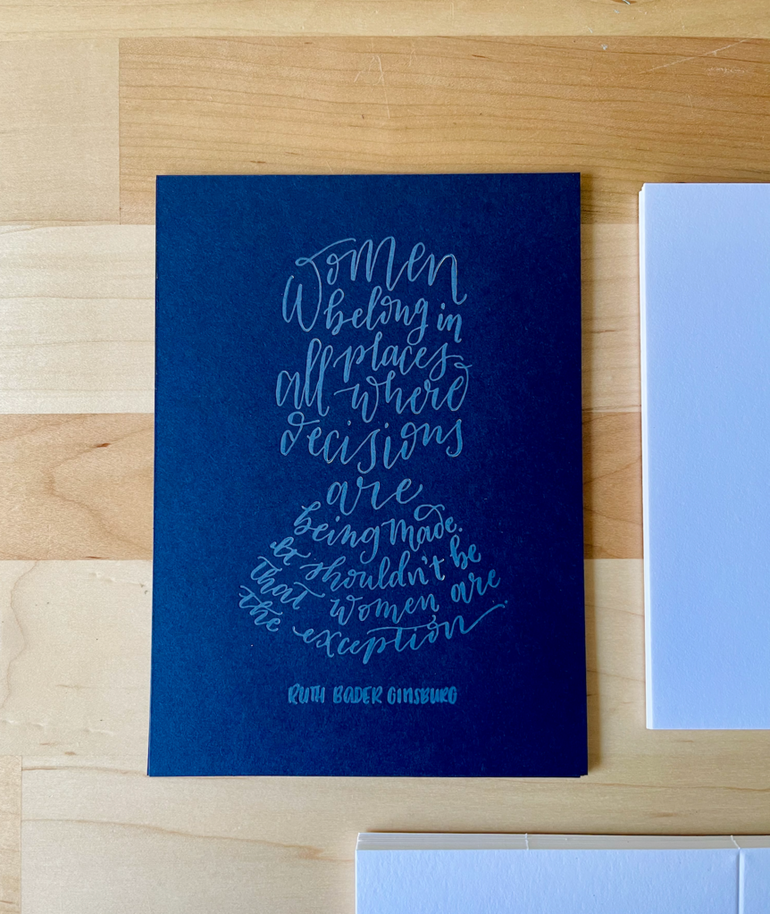 Women
belong in
all places
where
decisions
are
being made.
It shouldn't be
that women are
the exception.
RUTH BADER GINSBURG